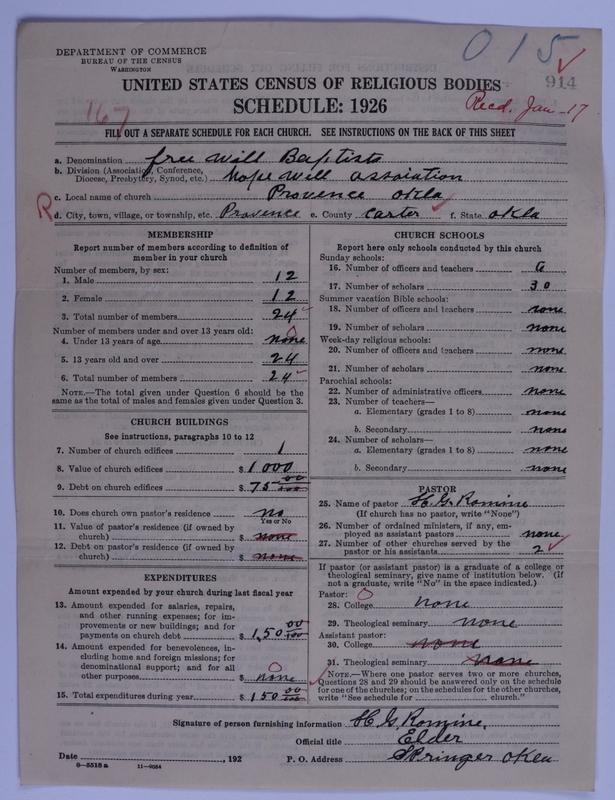 015
914
DEPARTMENT OF COMMERCE
BUREAU OF THE CENSUS
WASHINGTON
UNITED STATES CENSUS OF RELIGIOUS BODIES
SCHEDULE: 1926
Recd. Jan 17
167
FILL OUT A SEPARATE SCHEDULE FOR EACH CHURCH. SEE INSTRUCTIONS ON THE BACK OF THIS SHEET
a. Denomination free will Baptists
b. Division (Association, Conference, Diocese, Presbytery, Synod, etc.) hope will assoiation
c. Local name of church Provence okla
R d. City, town, village, or township, etc. Provence e. County carter f. State okla
MEMBERSHIP
Report number of members according to definition of
member in your church
Number of members, by sex:
1. Male 12
2. Female 12
3. Total number of members 24
Number of members under and over 13 years old:
4. Under 13 years of age none 0
5. 13 years old and over 24
6. Total number of members 24
NOTE.—The total given under Question 6 should be
same as the total of males and females given under Question 3.
CHURCH BUILDINGS
See instructions, paragraphs 10 to 12
7. Number of church edifices 1
8. Value of church edifices $ 1000
9. Debt on church edifices $ 75 00/100
10. Does church own pastor's residence no
Yes or No
11. Value of pastor's residence (if owned by
church) $ none
12. Debt on pastor's residence (if owned by
church) $ none
EXPENDITURES
Amount expended by your church during last fiscal year
13. Amount expended for salaries, repairs,
and other running expenses; for im-
provements or new buildings; and for
payments on church debt $ 150 00/100
14. Amount expended for benevolences, in-
cluding home and foreign missions; for
denominational support; and for all
other purposes $ none 0
15. Total expenditures during year $ 150 00/100
CHURCH SCHOOLS
Report here only schools conducted by this church
Sunday schools:
16. Number of officers and teachers 6
17. Number of scholars 30
Summer vacation Bible schools:
18. Number of officers and teachers none
19. Number of scholars none
Week-day religious schools:
20. Number of officers and teachers none
21. Number of scholars none
Parochial schools:
22. Number of administrative officers none
23. Number of teachers—
a. Elementary (grades 1 to 8) none
b. Secondary none
24. Number of scholars—
a. Elementary (grades 1 to 8) none
b. Secondary none
PASTOR
25. Name of pastor H G Romine
(If church has no pastor, write "None")
26. Number of ordained ministers, if any, em-
ployed as assistant pastors none
27. Number of other churches served by the
pastor or his assistants 2
If pastor (or assistant pastor) is a graduate of a college or
theological seminary, give name of institution below. (If
not a graduate, write "No" in the space indicated.)
Pastor: 0
28. College none
29. Theological seminary none
Assistant pastor:
30. College none
31. Theological seminary none
NOTE.—Where one pastor serves two or more churches,
Questions 28 and 29 should be answered only on the schedule
for one of the churches; on the schedules for the other churches,
write "See schedule for church."
Signature of person furnishing information H G, Romine,
Official title Elder
Date , 192 P. O. Address SPringer okla
8—5518 a 11—9034